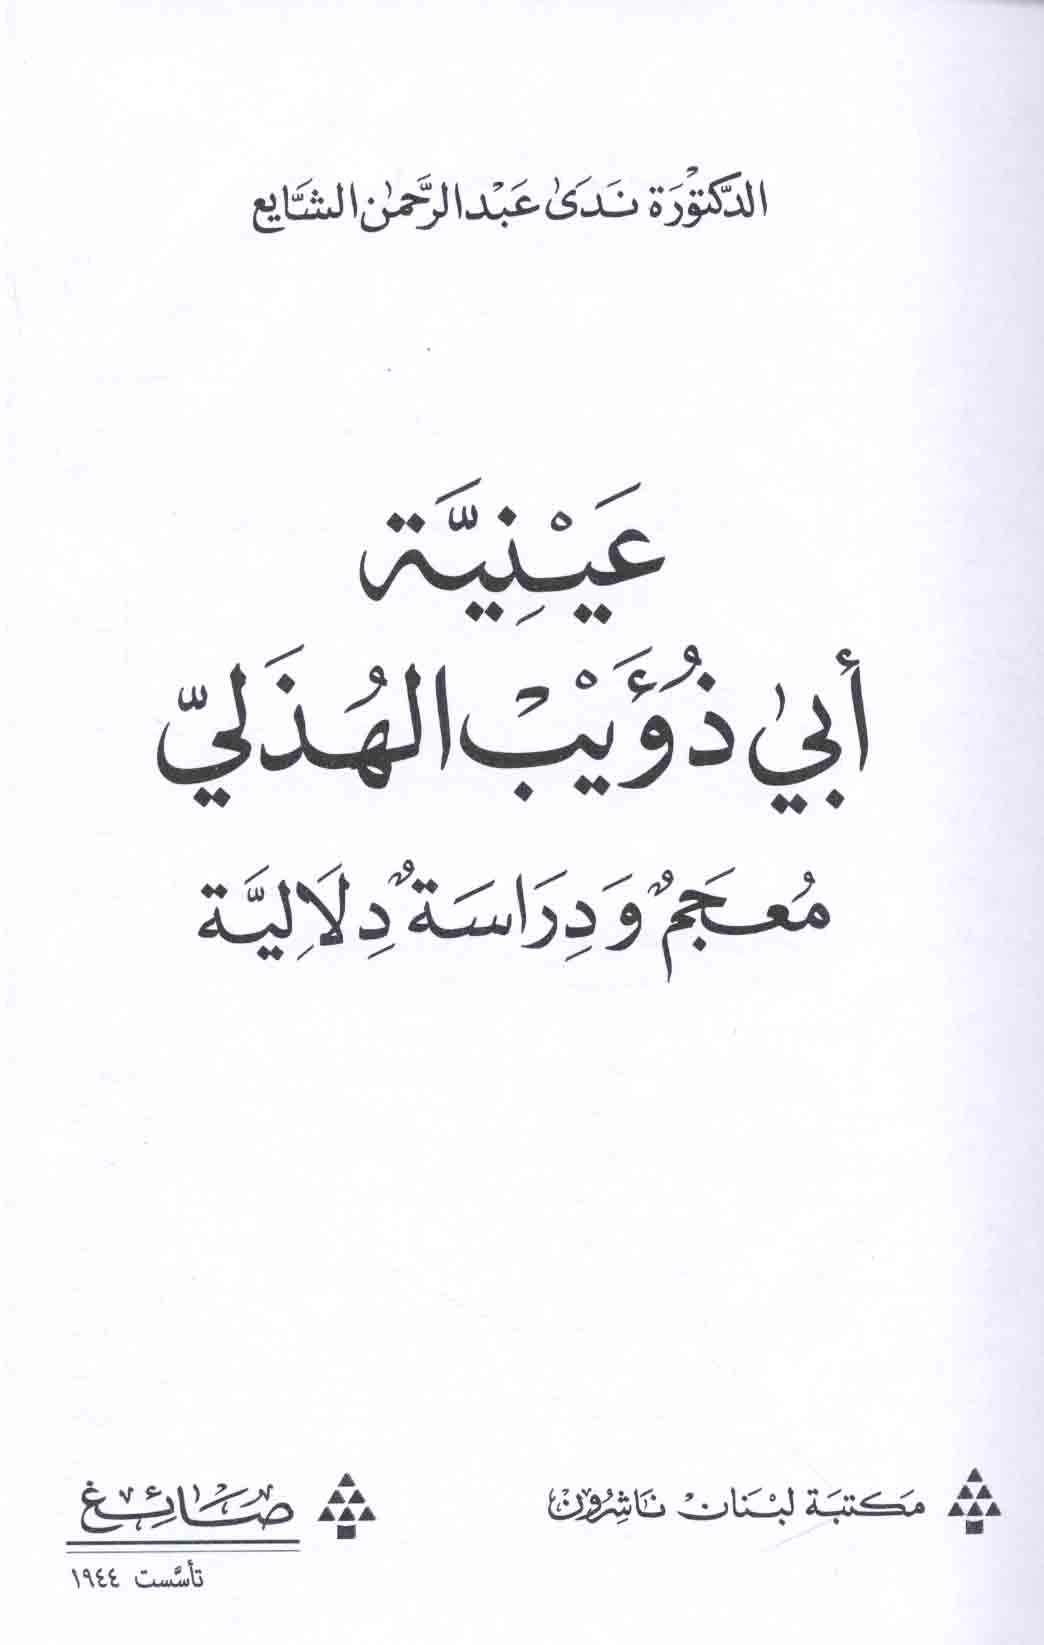 الدكتورة ندى عبد الرحمن الشايع
عَيْنِيَّة
أبي ذُؤَيْب الهُذَليّ
مُعجَمٌ وَدِرَاسَةٌ دِلَالِيَّة
مكتبة لبنان ناشرون
صائغ
تأسَّست ١٩٤٤